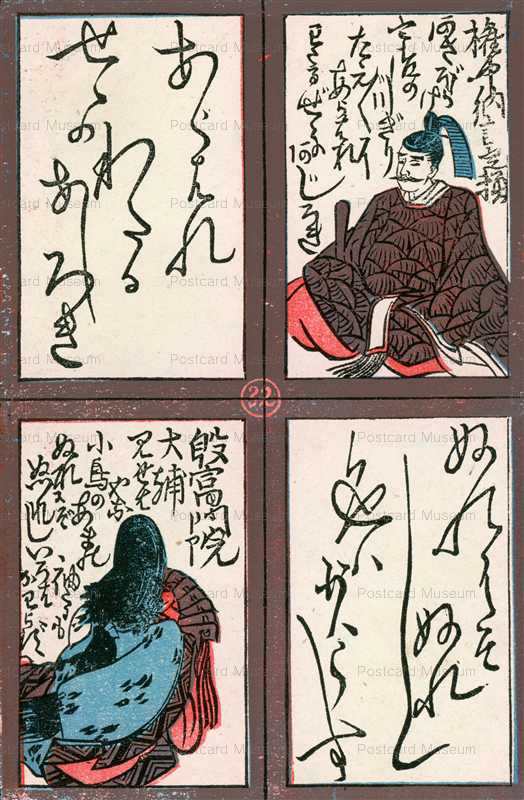 権中納言定頼
あさぼらけ
宇治の
川ぎり
たえ〲に
あらはれ
わたるせゞの
あじろき
あらはれ
わたる
せゝの
あしろき
32
ぬれにそ
ぬれし
色は
かはらす
殷富門院
大輔
見せば
やな
小島のあまの
袖だにも
ぬれにぞ
ぬれしいろは
かはらず
Postcard Museum